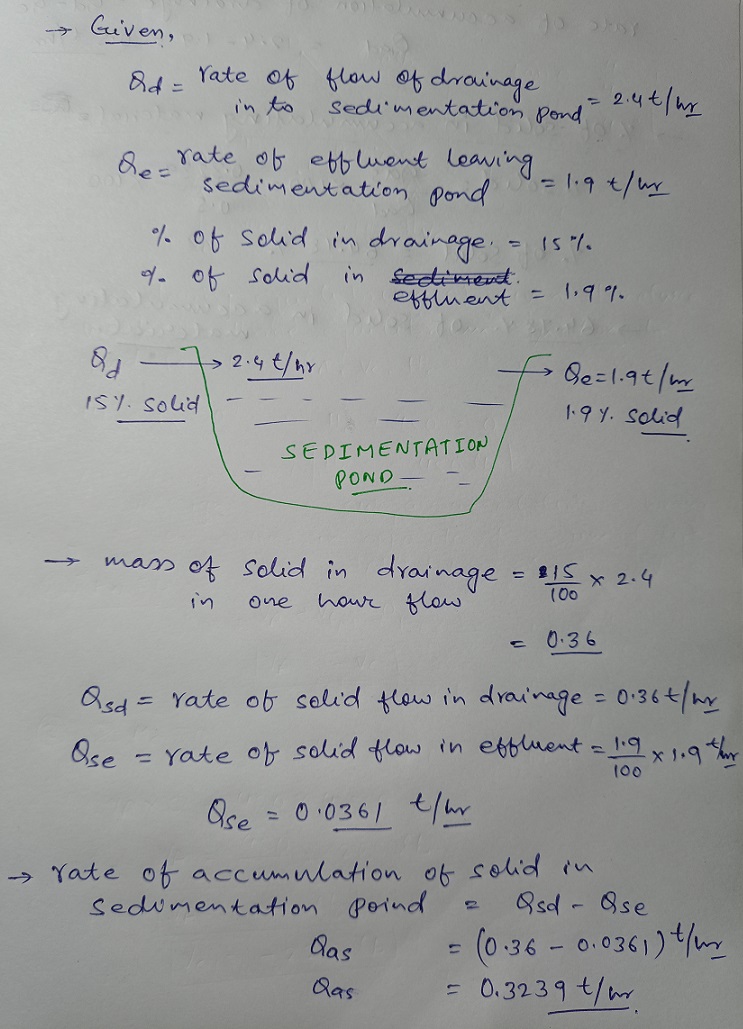 → Given,
Qd = rate of flow of drainage
in to sedimentation pond = 2.4 t/hr
Qe = rate of effluent leaving
sedimentation pond = 1.9 t/hr
% of solid in drainage. = 15%.
% of solid in sediment.
effluent = 1.9%.
Qd → 2.4 t/hr → Qe=1.9t/hr
15%. solid 1.9%. solid
SEDIMENTATION
POND
→ mass of solid in drainage = 15/100 x 2.4
in one hour flow
= 0.36
Qsd = rate of solid flow in drainage = 0.36t/hr
Qse = rate of solid flow in effluent = 1.9/100 x 1.9 t/hr
Qse = 0.0361 t/hr
→ rate of accumulation of solid in
sedimentation poind = Qsd - Qse
Qas = (0.36 - 0.0361) t/hr
Qas = 0.3239 t/hr.